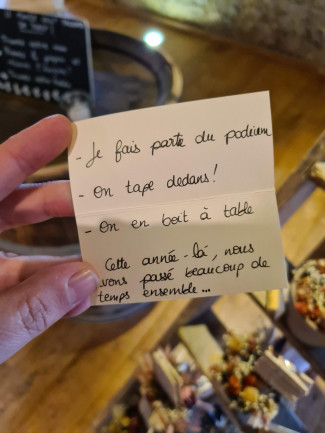 - Je fais partie du podium
- On tape dedans!
- On en boit à table
Cette année-là, nous
avons passé beaucoup de
temps ensemble...